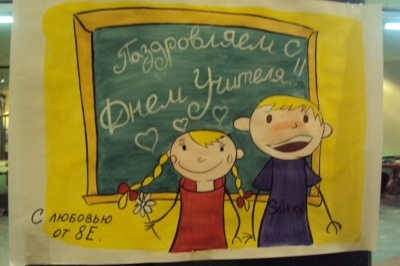 Поздровляем с
Днем Учителя..!!
School
С любовью
от 8Е.